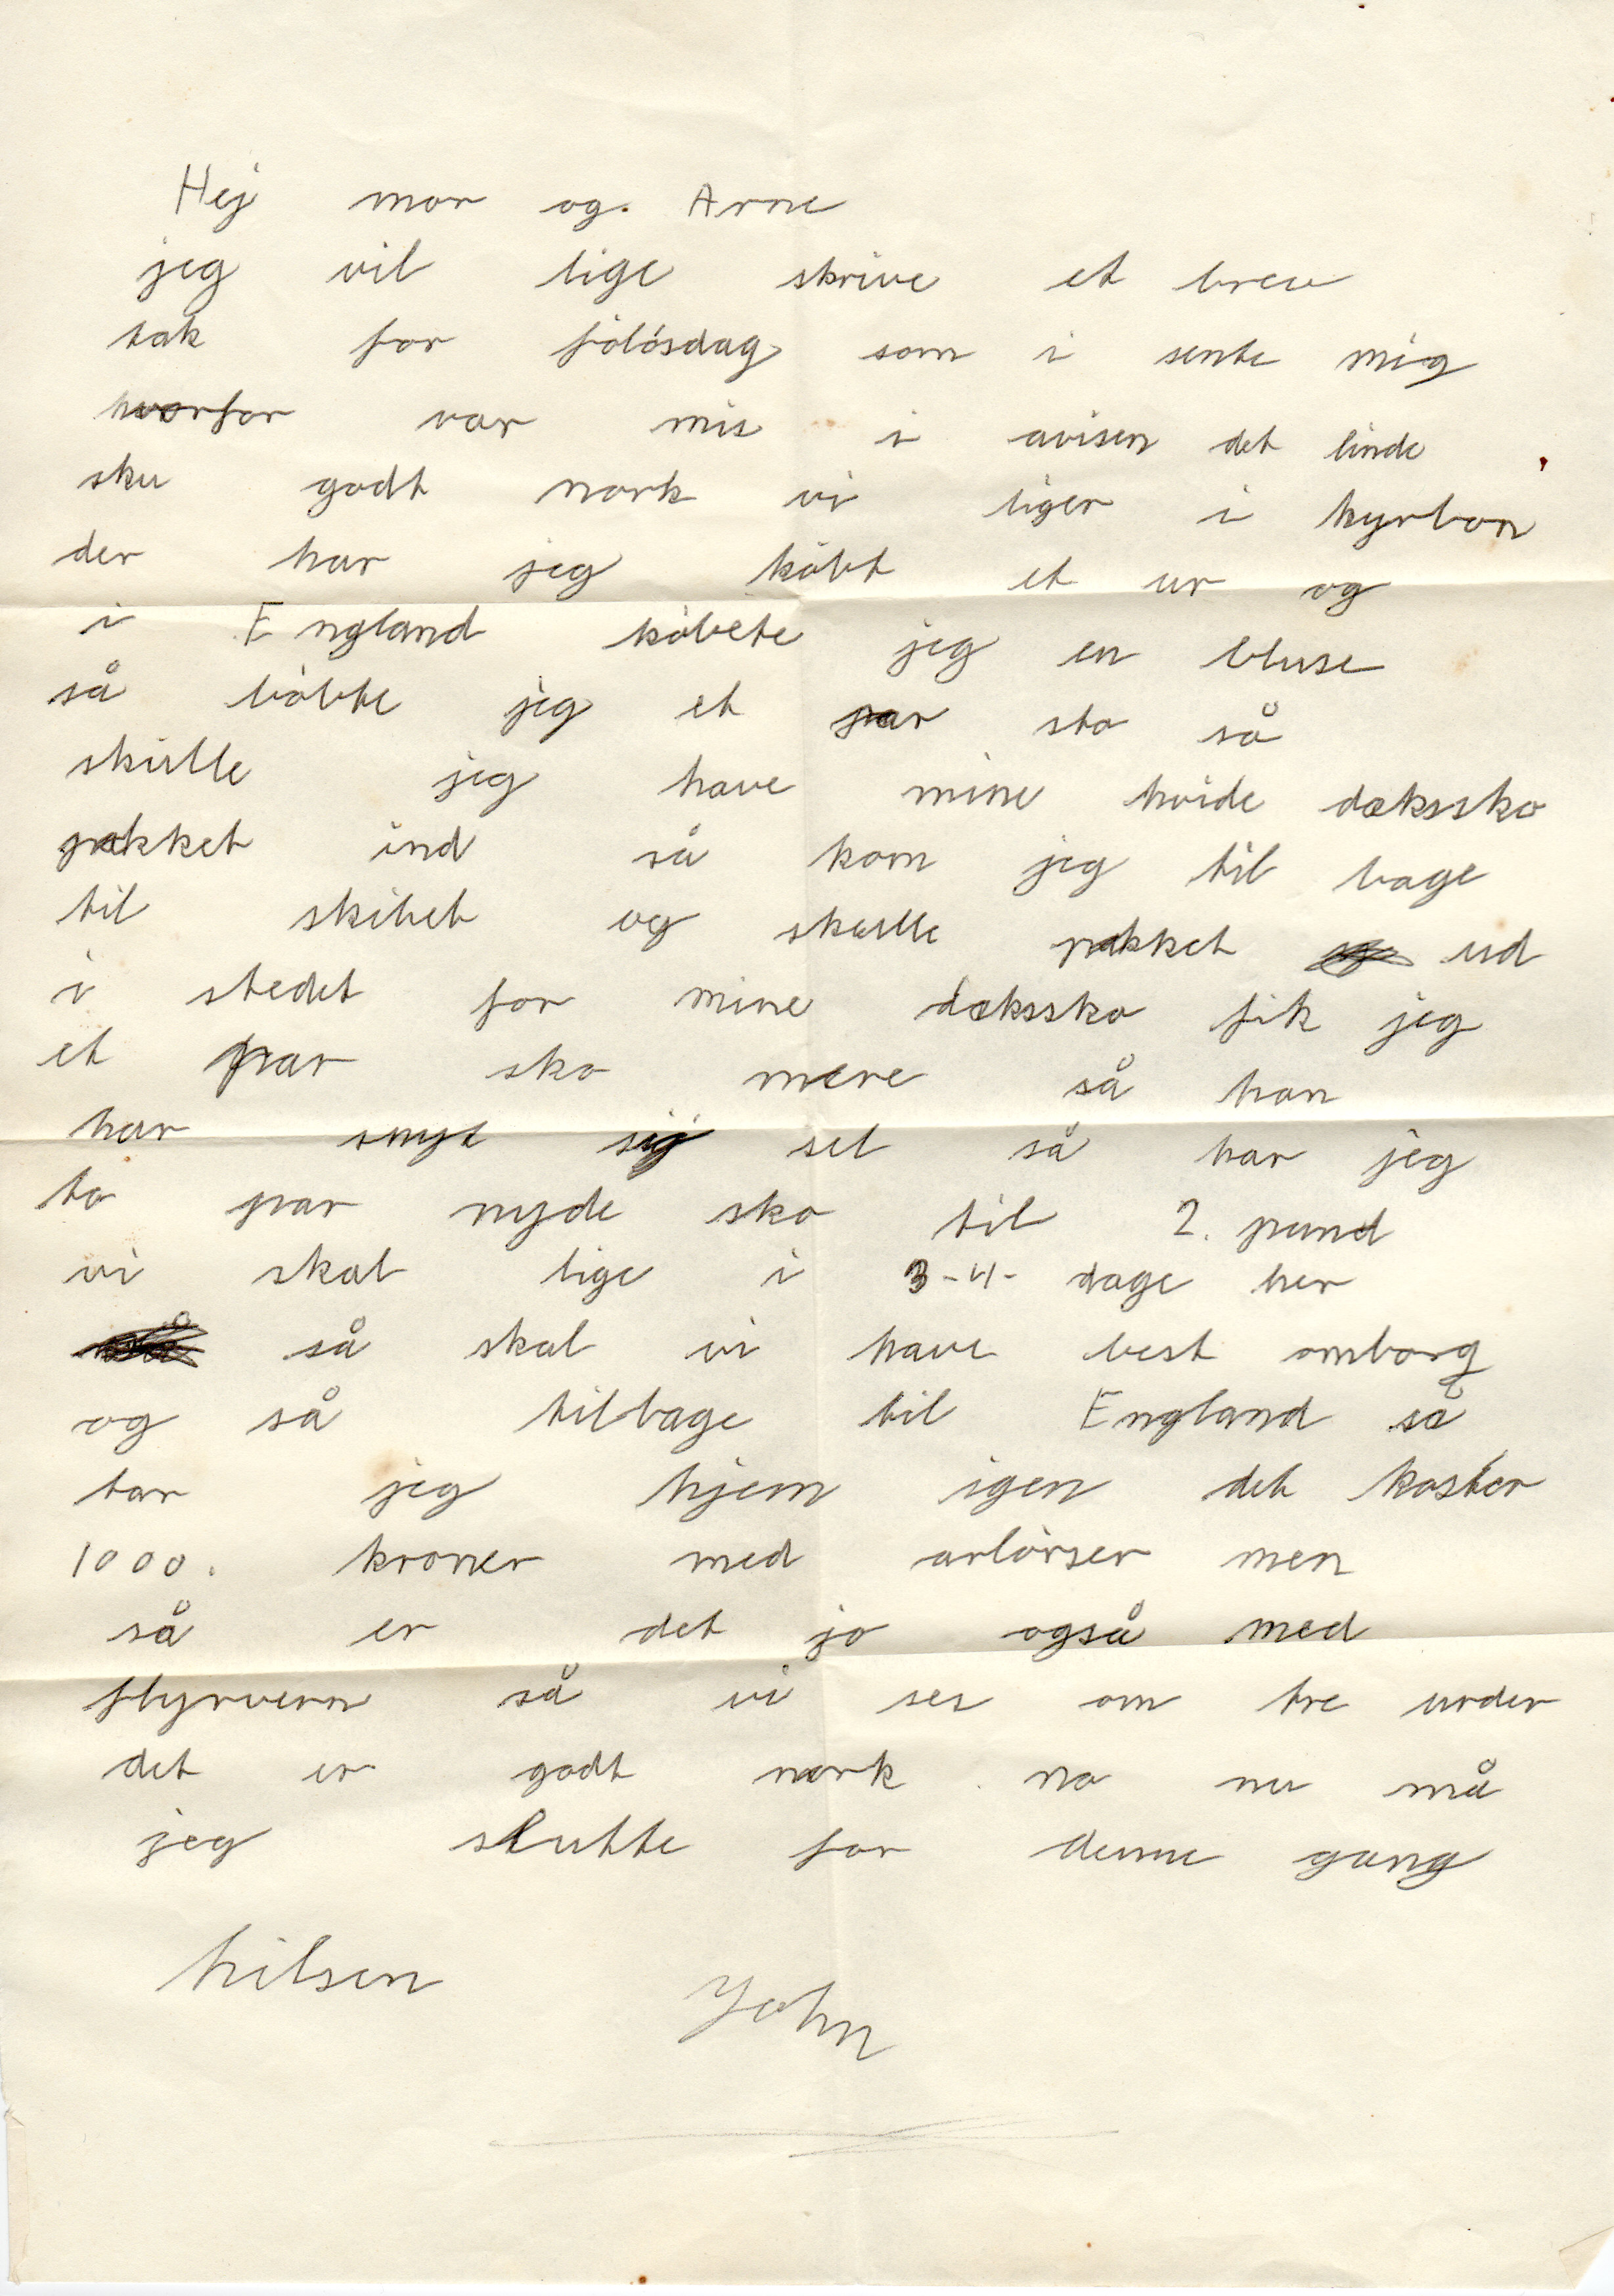 Hej mor og. Arne
jeg vil lige skrive et brev
tak for fölösdag som i sente mig
hvorfor var mis i avisen det linde
sku godt nork vi liger i hyrbon
der har jeg köbt et ur og
i England köbete jeg en bluse
så böbte jeg et par sko så
skulle jeg have mine hvide dækssko
pakket ind så kom jeg til bage
til skibet og skulle pakket ud
i stedet for mine dækssko fik jeg
et par sko mere så han
har snyt sig sel så har jeg
to par nyde sko til 2. pund
vi skal lige i 3-4- dage her
så skal vi have best omborg
og så tilbage til England så
tar jeg hjem igen det koster
1000. kroner med arlörser men
så er det jo også med
flyrvern så vi ses om tre urder
det er godt nork no nu må
jeg slutte for denne gang
hilsen John